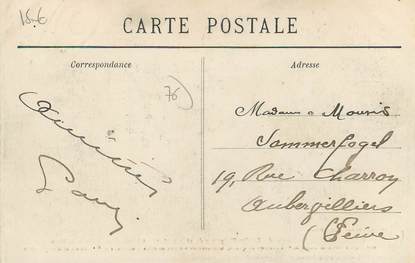 18-6
CARTE POSTALE
Correspondance
Adresse
76
Amitiés
Madame Mouris
Sommerfogel
19, Rue Charron
Aubervilliers
(Seine